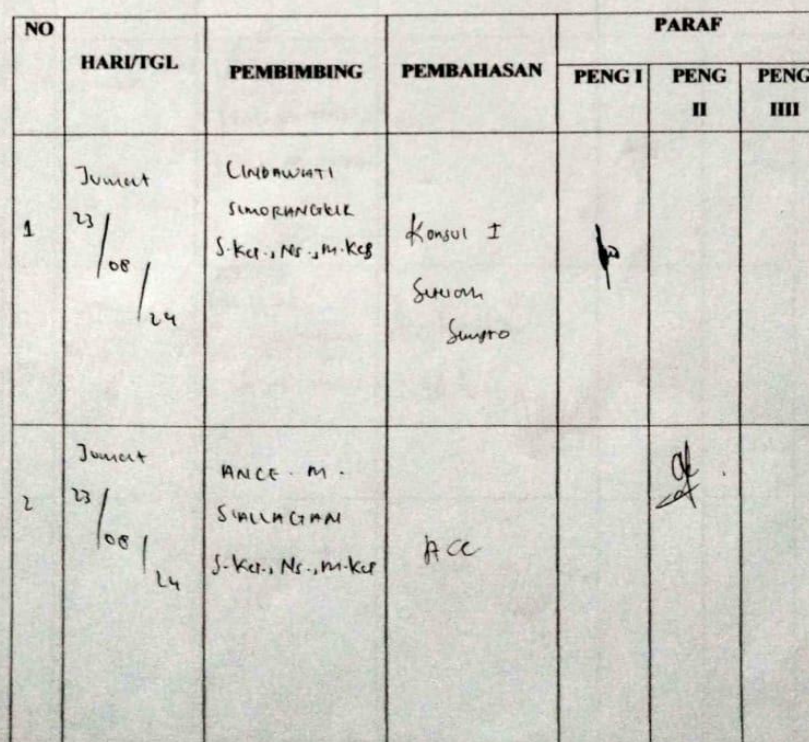 NO
HARI/TGL
PEMBIMBING
PEMBAHASAN
PARAF
PENG I
PENG
II
PENG
IIII
1
Jumat
23/08/24
LINDAWATI
SIMORANGKIR
S.Kep., Ns., M.Kep
Konsul I
2
Jumat
23/08/24
ANCE. M.
SIALLAGAN
S.Kep., Ns., M.Kep
ACC